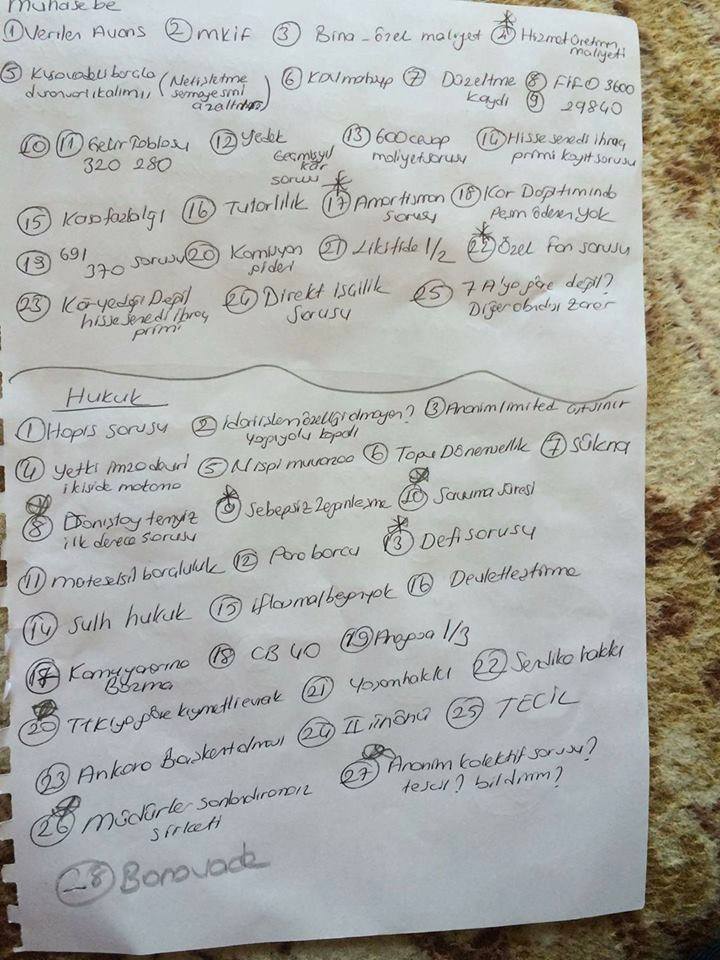 Muhasebe
① Verilen Avans ② MKİF ③ Bina - özel maliyet ④ Hizmet üretim
maliyeti
⑤ Kısa vadeli borçla duran varlık alımı (Net işletme sermayesini azaltır) ⑥ KDV mahsup ⑦ Düzeltme kaydı ⑧ FİFO 3600
⑨ 29840
⑩ ⑪ Gelir Tablosu ⑫ Yedek ⑬ 600 cevap ⑭ Hisse senedi ihraç
320 280 Geçmiş yıl kar sorusu maliyet sorusu primi kayıt sorusu
⑮ Kasa fazlalığı ⑯ Tutarlılık ⑰ Amortisman sorusu ⑱ Kar Dağıtımında
Peşin ödenen yok
⑲ 691 370 sorusu ⑳ Komisyon gideri ㉑ Likidite 1/2 ㉒ Özel fon sorusu
㉓ Kar yedeği Değil hisse senedi ihraç primi ㉔ Direkt işçilik sorusu ㉕ 7 A'ya göre değil?
Diğer olağandışı zarar
Hukuk
① Hapis sorusu ② İdari işlem özelliği olmayan? ③ Anonim limited
yargı yolu kapalı
④ Yetki imza
ikiside ⑤ Nispi muvazaa ⑥ Tapu Dönemsellik ⑦ Sükna
⑧ Danıştay temyiz ⑨ Sebepsiz Zenginleşme ⑩ Savunma süresi
ilk derece sorusu
⑪ müteselsil borçluluk ⑫ Para borcu ⑬ Defi sorusu
⑭ Sulh hukuk ⑮ İflas mal beyanı yok ⑯ Devletleştirme
⑰ Kanun yararına Bozma ⑱ CB 40 ⑲ Anayasa 1/3
⑳ TTK'ya göre kıymetli evrak ㉑ Yaşam hakkı ㉒ Sendika hakkı
㉓ Ankara Başkent olması ㉔ II inönü ㉕ TECİL
㉖ Müdürler sonlandıramaz şirketi ㉗ Anonim kolektif sorusu?
tescil? bildirim?
㉘ Bono vade